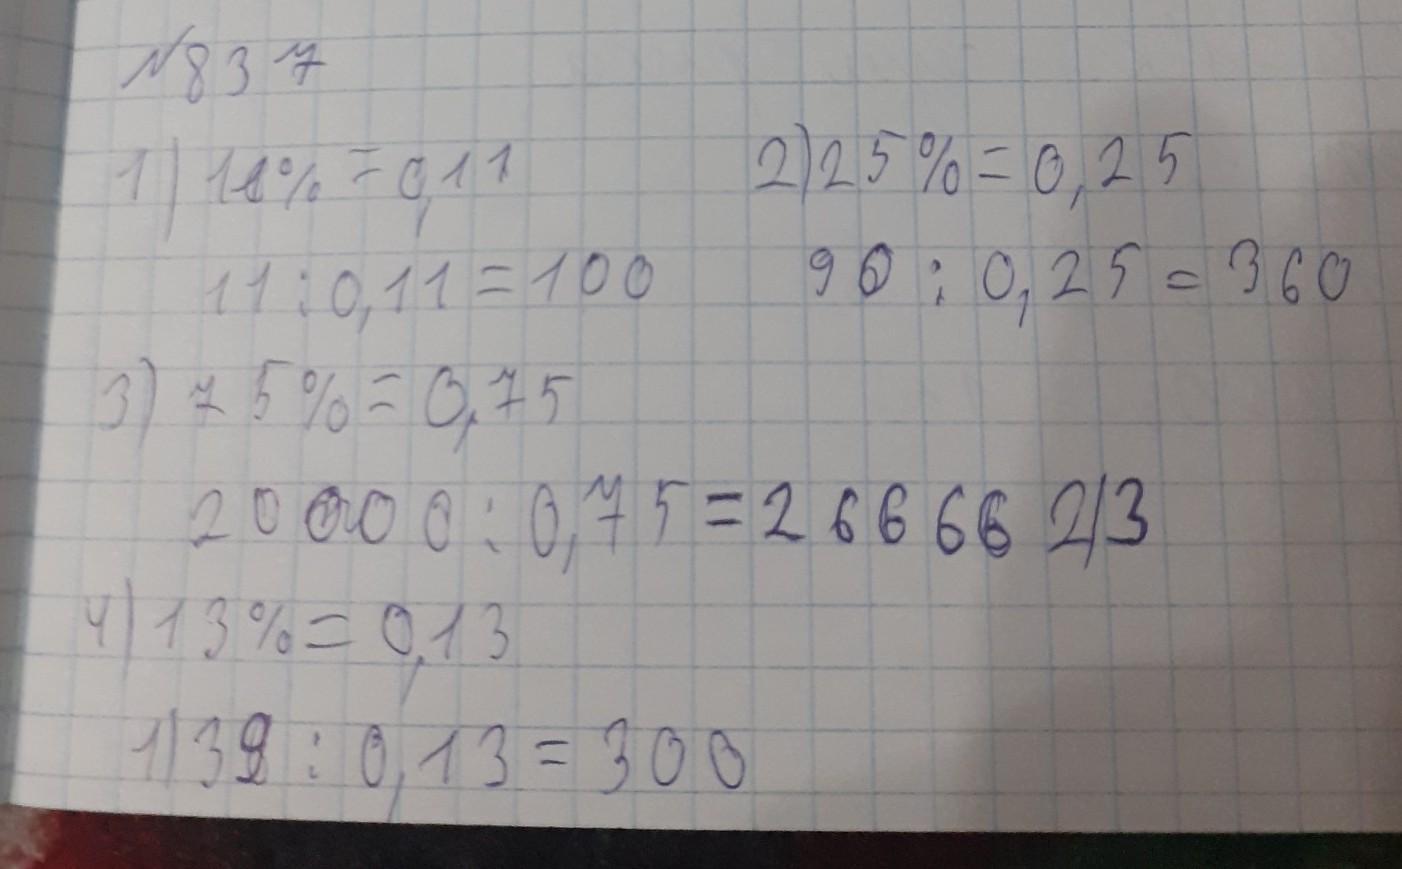 №837
1) 11% = 0,11
2) 25% = 0,25
11 : 0,11 = 100
90 : 0,25 = 360
3) 75% = 0,75
20000 : 0,75 = 26666 2/3
4) 13% = 0,13
1) 39 : 0,13 = 300